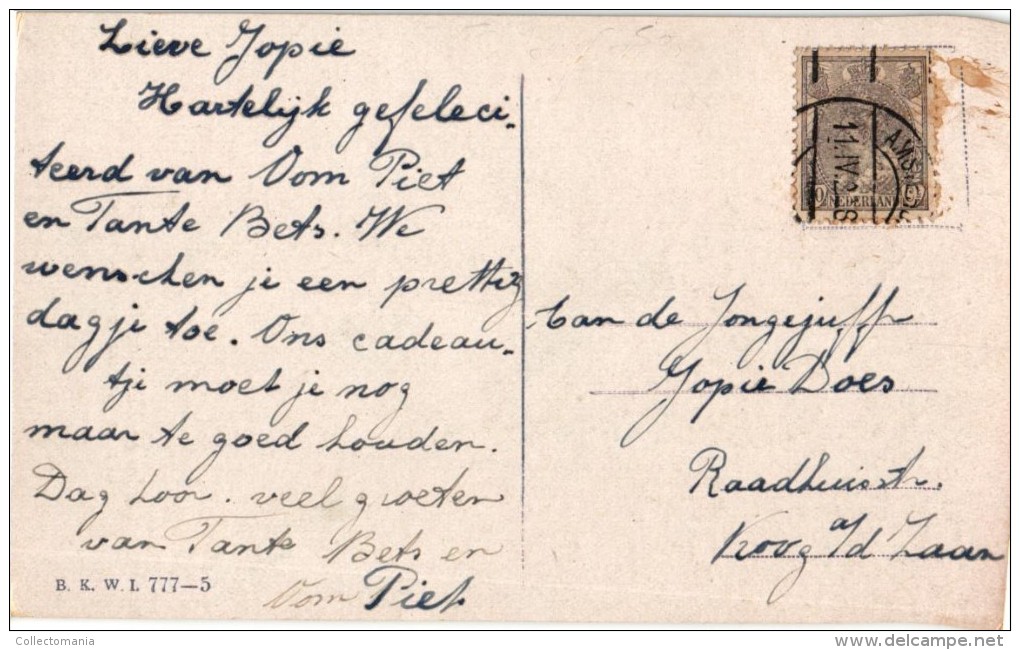 Lieve Jopie
Hartelijk gefeleci-
teerd van Oom Piet
en Tante Bets. We
wenschen je een prettig
dagje toe. Ons cadeau-
tji moet je nog
maar te goed houden.
Dag hoor. veel groeten
van Tante Bets en
Oom Piet
B. K. W. I. 777—5
11.IV
AMST
NEDERLAND
Aan de Jongejuffr
Jopie Does
Raadhuisstr.
Koog a/d Zaan
Collectomania
delcampe.net